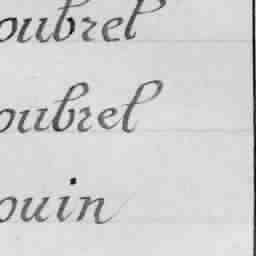 oubrel
oubrel
ouin